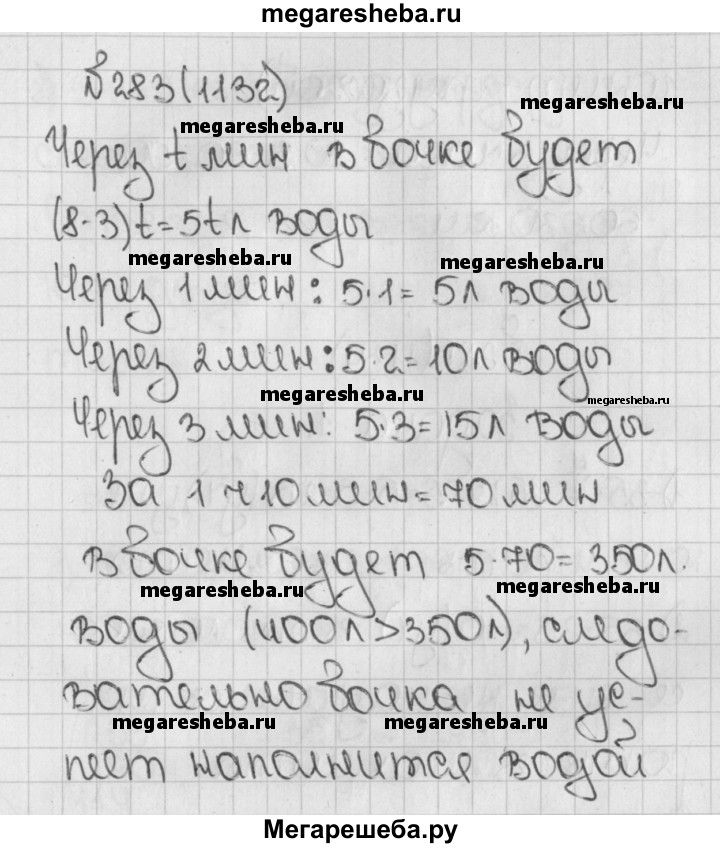 megaresheba.ru
№283(1132)
megaresheba.ru
megaresheba.ru
Через t мин в бочке будет
(8-3)t=5t л воды
megaresheba.ru
megaresheba.ru
Через 1 мин: 5·1=5л воды
Через 2 мин:5·2=10л воды
megaresheba.ru
megaresheba.ru
Через 3 мин: 5·3=15л воды
За 1ч10мин=70мин
в бочке будет 5·70=350л.
megaresheba.ru
megaresheba.ru
воды (400л>350л), следо-
вательно бочка не ус-
megaresheba.ru
megaresheba.ru
пеет наполнится водой
Мегарешеба.ру